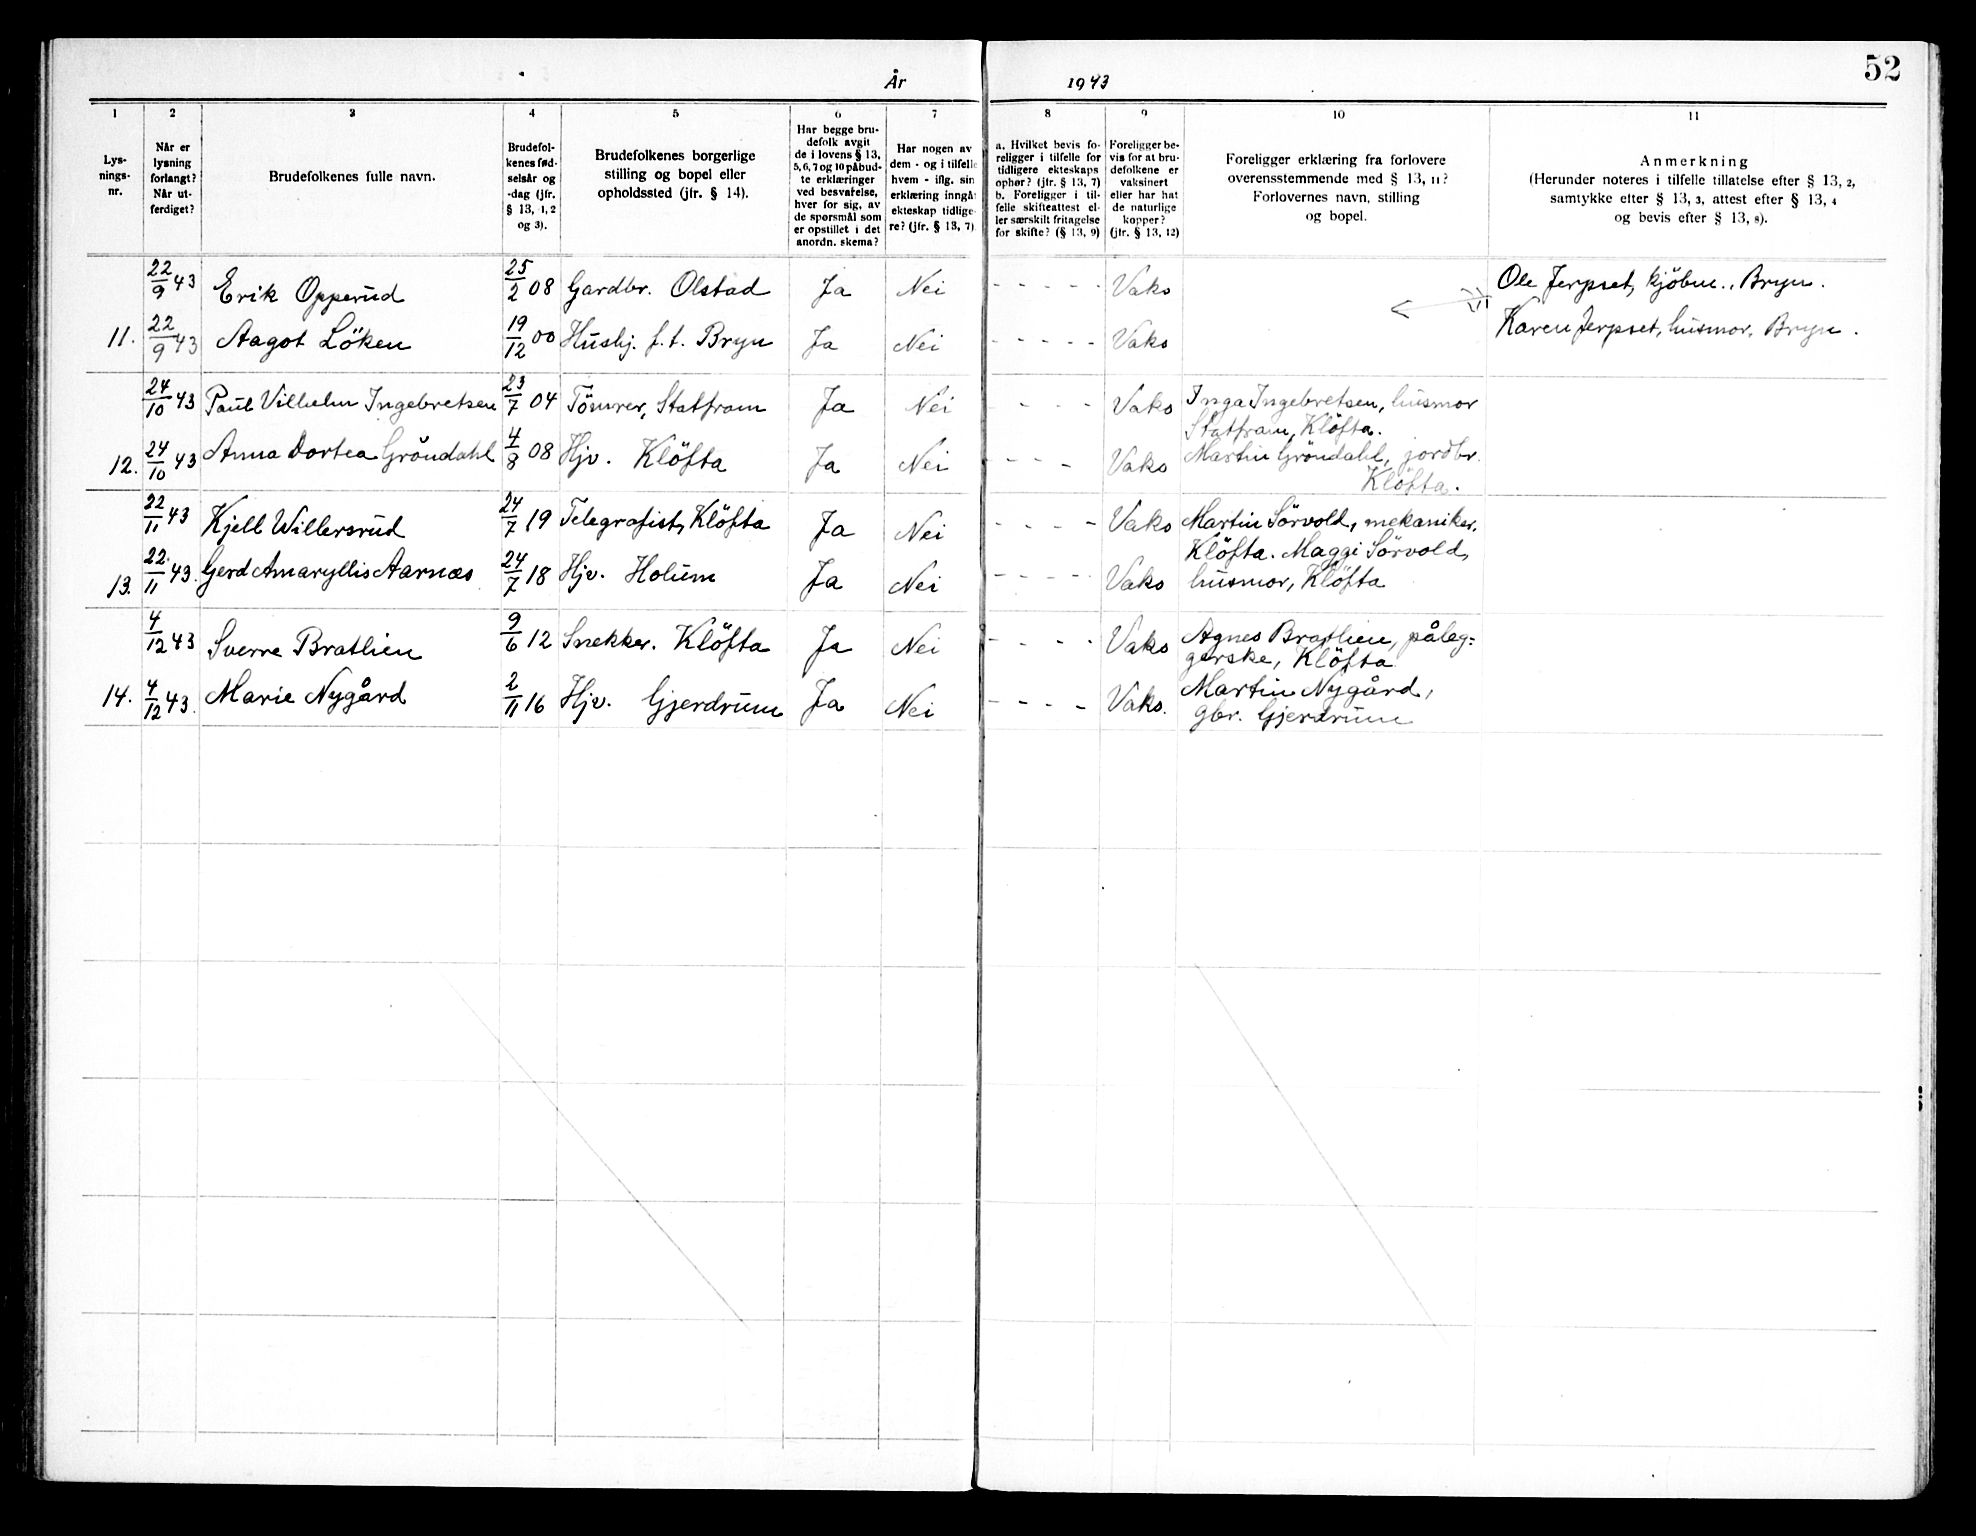 52
År 1943
1 2 3 4 5 6 7 8 9 10 11
Lys-
nings-
nr.
Når er
lysning
forlangt?
Når ut-
ferdiget?
Brudefolkenes fulle navn.
Brudefol-
kenes fød-
selsår og
-dag (jfr.
§ 13, 1, 2
og 3).
Brudefolkenes borgerlige
stilling og bopel eller
opholdssted (jfr. § 14).
Har begge bru-
defolk avgit
de i lovens § 13,
5, 6, 7 og 10 påbud-
te erklæringer
ved besvarelse,
hver for sig, av
de spørsmål som
er opstillet i det
anordn. skema?
Har nogen av
dem - og i tilfelle
hvem - iflg. sin
erklæring inngå
ekteskap tidlige-
re? (jfr. § 13, 7)
a. Hvilket bevis fo-
religger i tilfelle for
tidligere ekteskaps
ophør? (jfr. § 13, 7)
b. Foreligger i til-
felle skifteattest el-
ler særskilt fritagelse
for skifte? (§ 13, 9)
Foreligger be-
vis for at bru-
defolkene er
vaksinert
eller har hat
de naturlige
kopper?
(jfr. § 13, 12)
Foreligger erklæring fra forlovere
overensstemmende med § 13, 11?
Forlovernes navn, stilling
og bopel.
Anmerkning
(Herunder noteres i tilfelle tillatelse efter § 13, 2,
samtykke efter § 13, 3, attest efter § 13, 4
og bevis efter § 13, 8).
22/9 43 Erik Opperud 25/2 08 Gardbr. Olstad Ja Nei - - - - - Vaks Ole Jerpset, kjøbm., Bryn.
11. 22/9 43 Aagot Löken 19/12 00 Hushj. f.t. Bryn Ja Nei - - - - - Vaks Karen Jerpset, husmor, Bryn.
24/10 43 Paul Vilhelm Ingebretsen 23/7 04 Tömrer, Statfram Ja Nei - - - - Vaks Inga Ingebretsen, husmor
Statfram, Klöfta.
12. 24/10 43 Anna Dortea Gröndahl 4/8 08 Hjv. Klöfta Ja Nei - - - Vaks Martin Gröndahl, jordbr.
Klöfta.
22/11 43 Kjell Willersrud 24/7 19 Telegrafist, Klöfta Ja Nei - - - - Vaks Martin Sörvold, mekaniker,
Klöfta. Maggi Sörvold,
13. 22/11 43. Gerd Amaryllis Aarnæs 24/7 18 Hjv. Holum Ja Nei - - - - - Vaks husmor, Klöfta
4/12 43 Sverre Brathien 9/6 12 Snekker. Klöfta Ja Nei - - - - Vaks Agnes Brathien, påleg-
gerske, Klöfta
14. 4/12 43. Marie Nygård 2/11 16 Hjv. Gjerdrum Ja Nei - - - - Vaks. Martin Nygård,
gbr. Gjerdrum